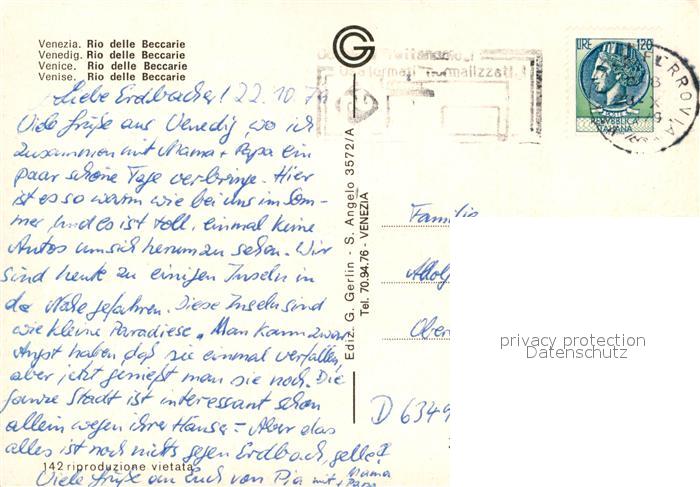 Venezia. Rio delle Beccarie
Venedig. Rio delle Beccarie
Venice. Rio delle Beccarie
Venise. Rio delle Beccarie
G
LIRE 120
REPVBBLICA
ITALIANA
FERROVIA
normalizzati
Liebe Erdbacher! 22.10.79
Viele Grüße aus Venedig, wo ich
zusammen mit Mama + Papa ein
paar schöne Tage verbringe. Hier
ist es so warm wie bei uns im Som-
mer und es ist toll, einmal keine
Autos um sich herum zu sehen. Wir
sind heute zu einigen Inseln in
der Nähe gefahren. Diese Inseln sind
wie kleine Paradiese. Man kann zwar
Angst haben, daß sie einmal verfallen,
aber jetzt genießt man sie noch. Die
ganze Stadt ist interessant schon
allein wegen ihrer Häuser – Aber das
alles ist noch nichts gegen Erdbach, gelle?
Viele Grüße an Euch von Pia mit Mama
+ Papa
142 riproduzione vietata
Ediz. G. Gerlin - S. Angelo 3572/A
Tel. 70.94.76 - VENEZIA
Familie
Adolf
Ober
D 6349
privacy protection
Datenschutz